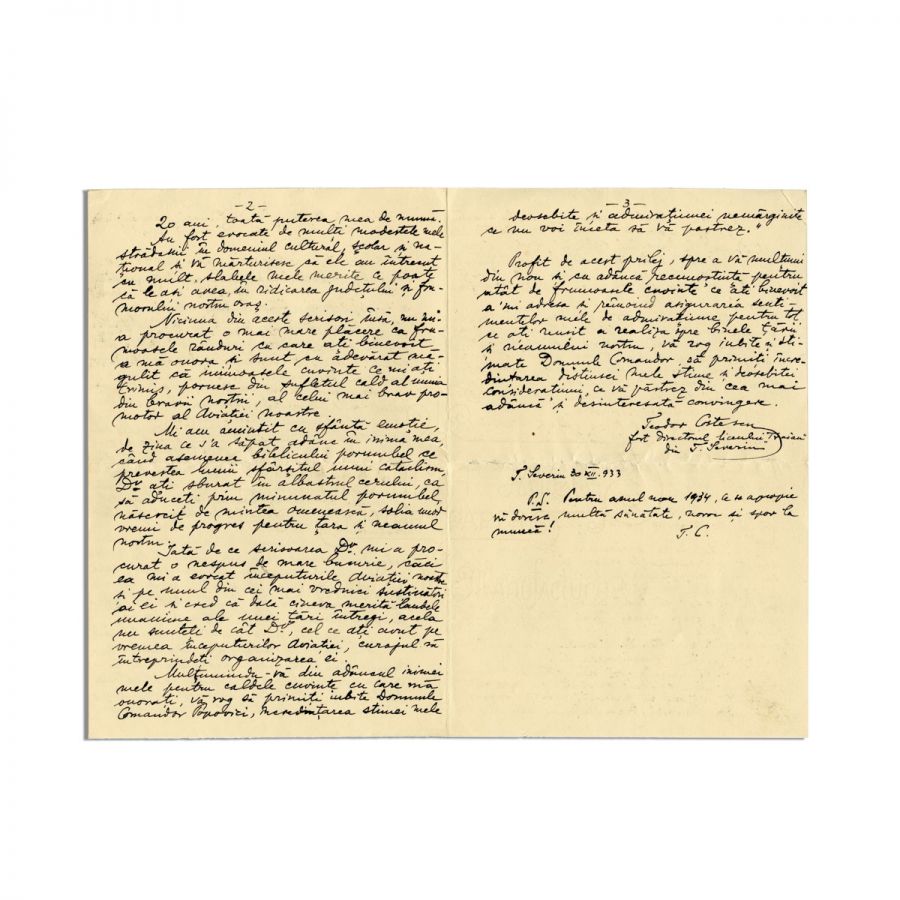 -2-
20 ani, toată puterea mea de muncă.
Au fost evocate de mulți modestele mele
strădanii în domeniul cultural, școlar și na-
țional și vă mărturisesc că ele au întrecut
cu mult, slabele mele merite ce poate
că le-ași avea, în ridicarea județului și fru-
mosului nostru oraș.
Niciuna din aceste scrisori însă, nu mi-
a procurat o mai mare plăcere ca fru-
moasele rânduri cu care ați binevoit
a mă onora și sunt cu adevărat mă-
gulit că inimoasele cuvinte ce mi ați
trimis, pornesc din sufletul cald al unuia
din bravii noștri, al celui mai brav pro-
motor al Aviației noastre.
Mi am amintit cu sfântă emoție,
de ziua ce s'a săpat adânc în inima mea,
când asemenea biblicului porumbel ce
prevestea lumii sfârșitul unui cataclism,
Dv. ați sburat în albastrul cerului, ca
să aduceți prin minunatul porumbel,
născocit de mintea omenească, solia unor
vremi de progres pentru țara și neamul
nostru.
Iată de ce scrisoarea Dv. mi a pro-
curat o nespus de mare bucurie, căci
ea mi a evocat începuturile Aviației noastre
și pe unul din cei mai vrednici susținători
ai ei și cred că dacă cineva merită laudele
unanime ale unei țări întregi, acela
nu sunteți de cât Dv., cel ce ați avut pe
vremea începuturilor Aviației, curajul să
întreprindeți organizarea ei.
Mulțumindu-vă din adâncul inimei
mele pentru caldele cuvinte cu care mă
onorați, vă rog să primiți iubite Domnule
Comandor Popovici, încredințarea stimei mele
-3-
deosebite și admirațiunei nemărginite
ce nu voi înceta să vă păstrez."
Profit de acest prilej, spre a vă mulțumi
din nou și cu adâncă recunoștință pentru
atât de frumoasele cuvinte ce ați binevoit
a 'mi adresa și reînoind asigurarea senti-
mentelor mele de admirațiune pentru tot
ce ați reușit a realiza spre binele Țării
și neamului nostru, vă rog iubite și sti-
mate Domnule Comandor, să primiți încre-
dințarea distinsei mele stime și deosebitei
considerațiuni, ce vă păstrez din cea mai
adâncă și desinteresată convingere.
Teodor Costescu
fost Directorul liceului Traian
din T. Severin
T. Severin 30 XII. 933
P.S. Pentru anul nou 1934, ce se apropie
vă doresc, multă sănătate, noroc și spor la
muncă!
T. C.